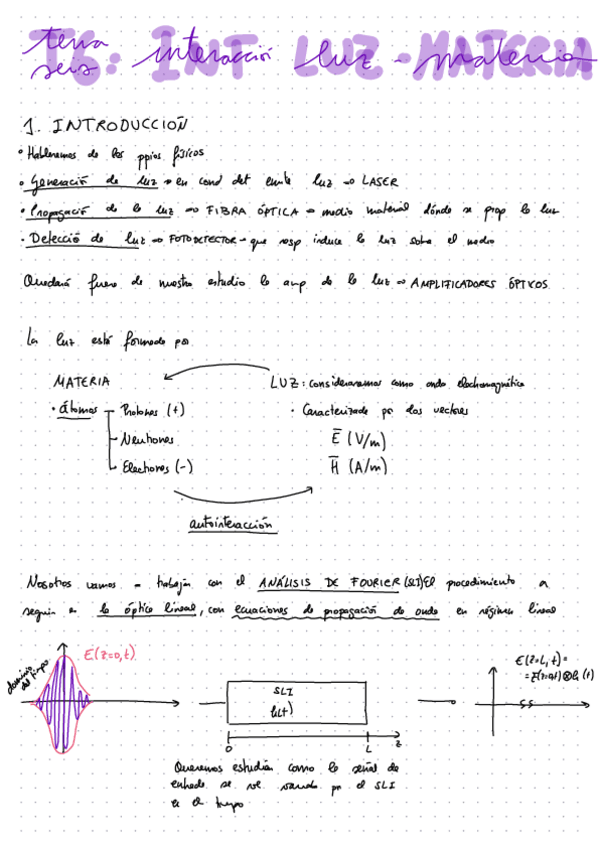 T6: INT LUZ-MATERIA
tema seis interacción luz-materia
1. INTRODUCCIÓN
• Hablaremos de los ppios físicos
• Generación de luz → en cond det emite luz → LASER
• Propagació de la luz → FIBRA ÓPTICA → medio material dónde se prop la luz
• Detecció de luz → FOTODETECTOR → que resp induce la luz sobre el medio
Quedará fuera de nuestro estudio la amp de la luz → AMPLIFICADORES ÓPTICOS
La luz está formada por
MATERIA
LUZ: consideraremos como onda electromagnética
• Átomos
Protones (+)
Neutrones
Electrones (-)
• Caracterizada por dos vectores
E (V/m)
H (A/m)
autointeracción
Nosotros vamos a trabajar con el ANÁLISIS DE FOURIER (SLI) El procedimiento a
seguir es la óptica lineal, con ecuaciones de propagación de onda en régimen lineal
dominio del tiempo
E(z=0,t)
SLI
h(t)
0
L
z
E(z=L,t)=
=E(z=0,t)⊗h(t)
Queremos estudiar como la señal de
entrada se ve variada por el SLI
en el tiempo